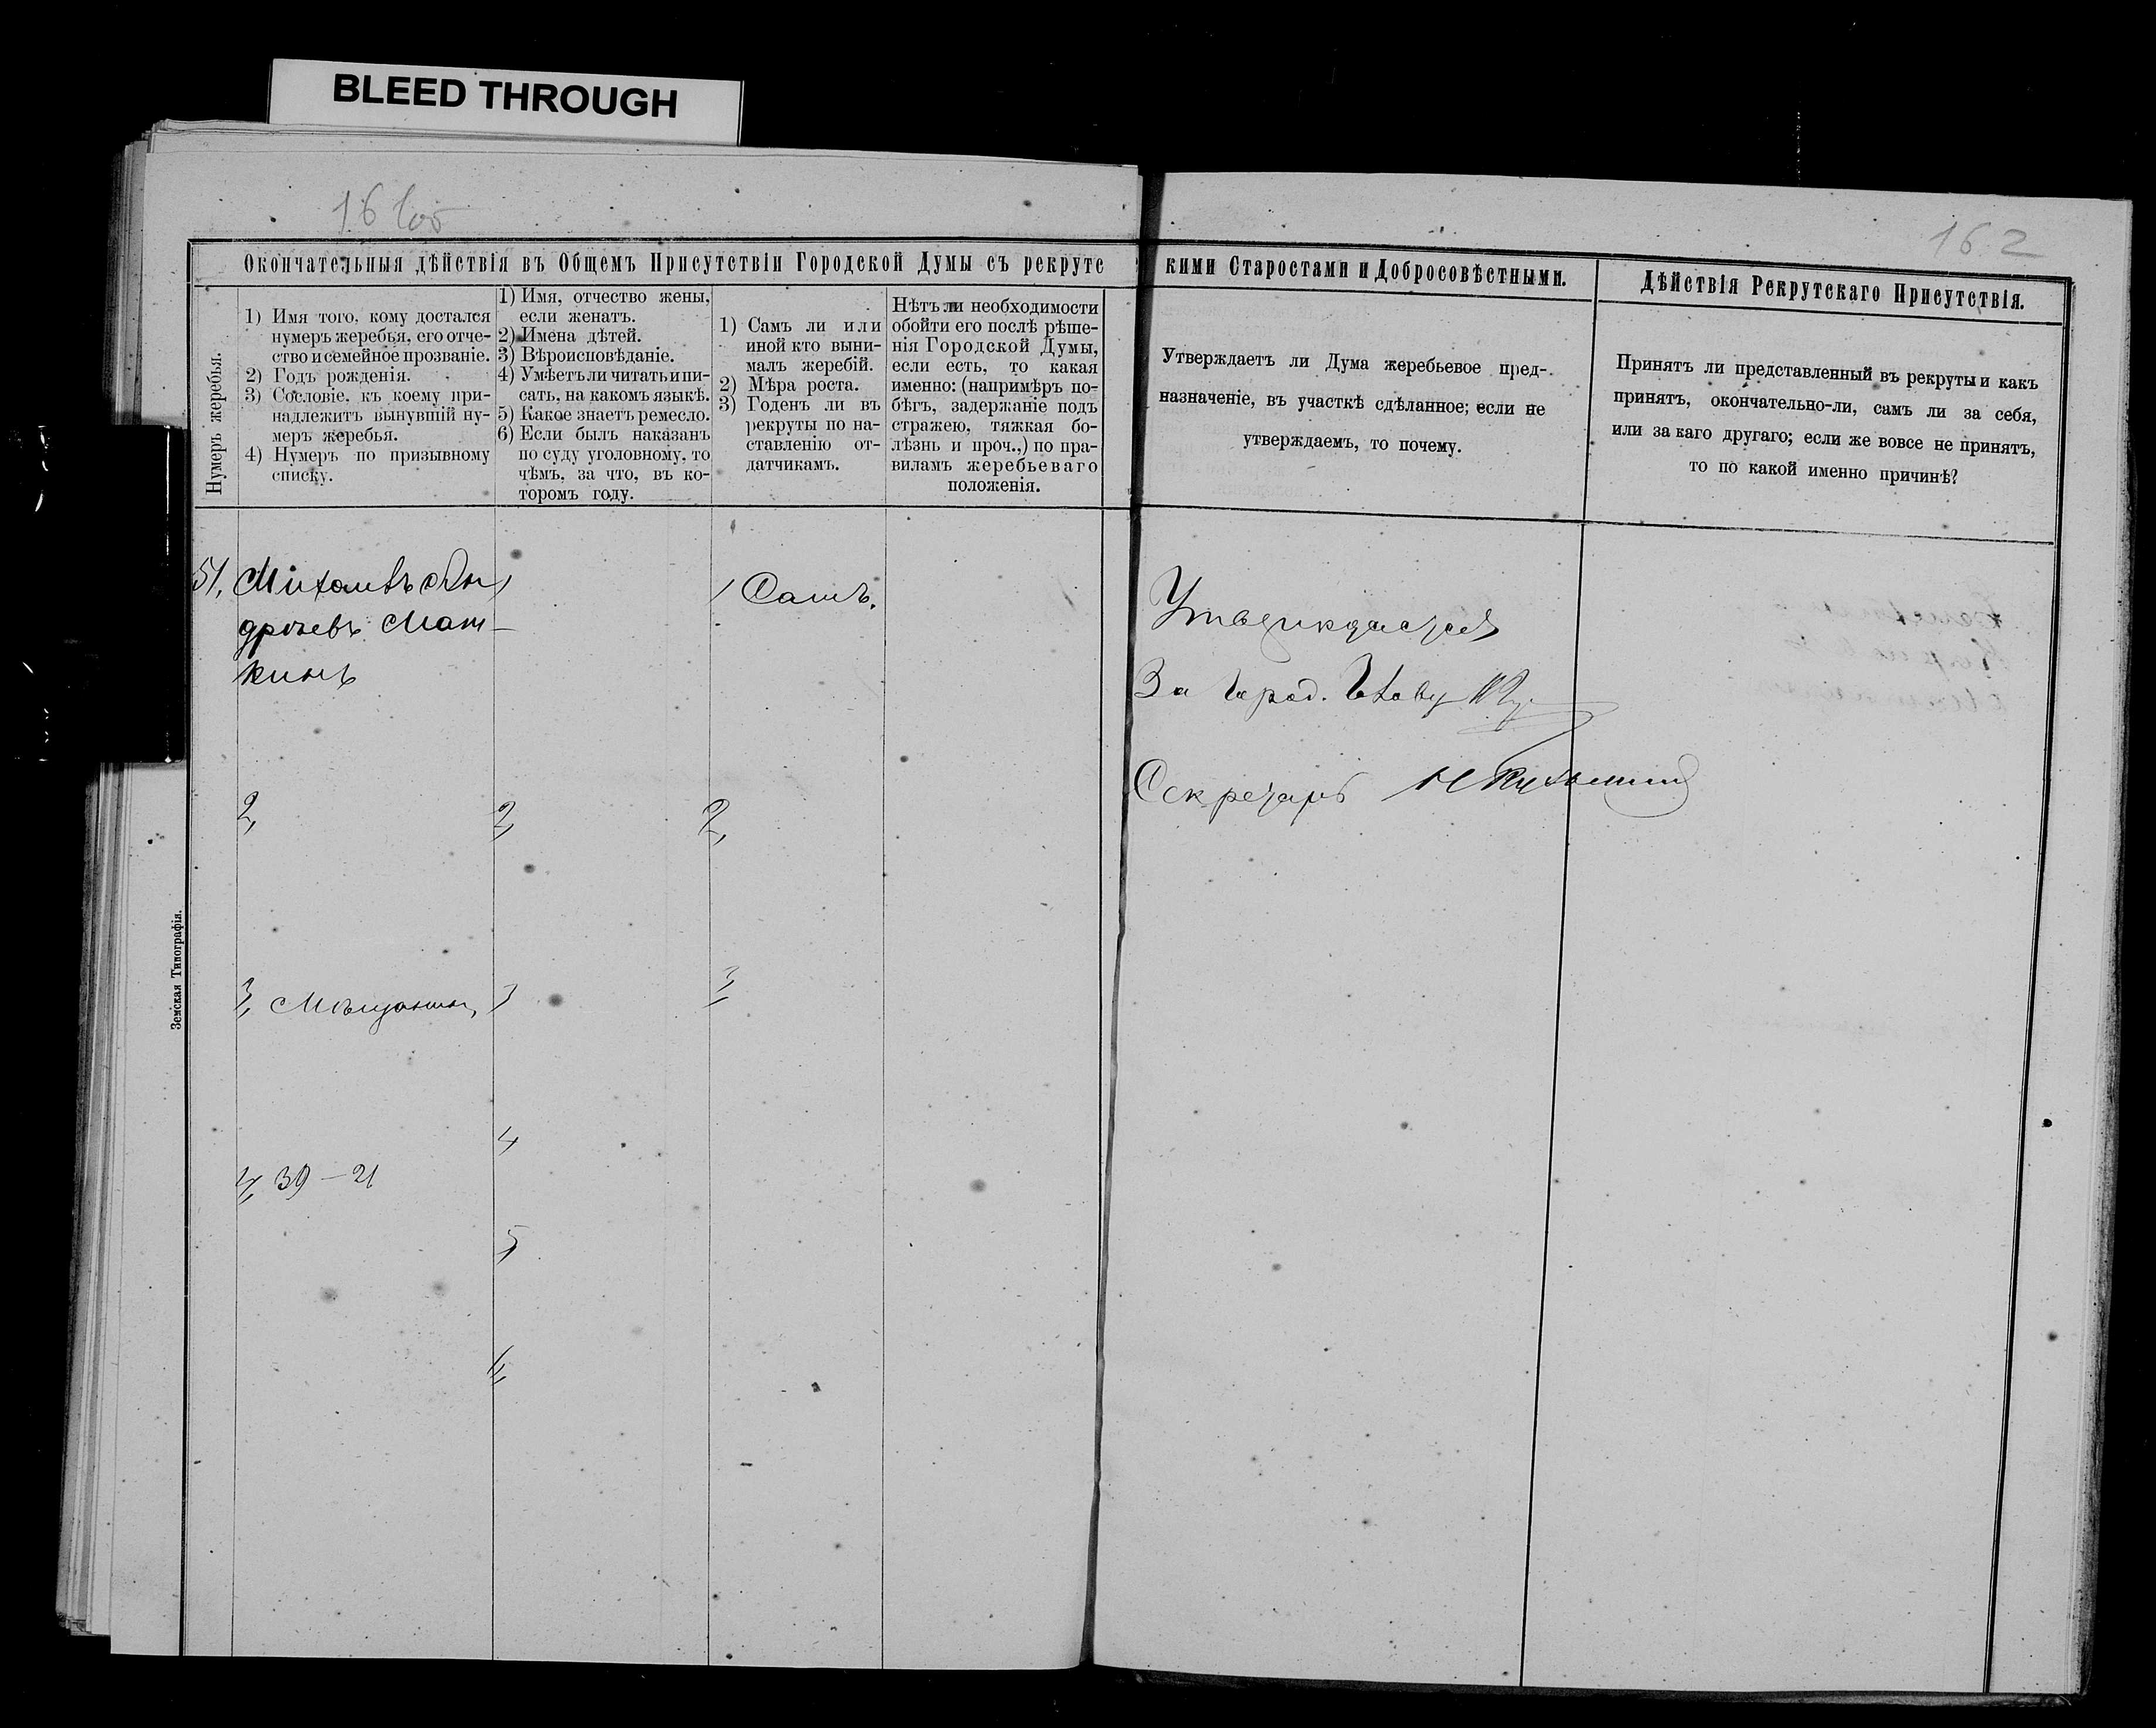 BLEED THROUGH
16 1об
162
Окончательныя дѣйствія въ Общемъ Присутствіи Городской Думы съ рекрутс
кими Старостами и Добросовѣстными.
Дѣйствія Рекрутскаго Присутствія.
Нумеръ жеребья.
1) Имя того, кому достался
нумеръ жеребья, его отче-
ство и семейное прозваніе.
2) Годъ рожденія.
3) Сословіе, къ коему при-
надлежитъ вынувшій ну-
меръ жеребья.
4) Нумеръ по призывному
списку.
1) Имя, отчество жены,
если женатъ.
2) Имена дѣтей.
3) Вѣроисповѣданіе.
4) Умѣетъ ли читать и пи-
сать, на какомъ языкѣ.
5) Какое знаетъ ремесло.
6) Если былъ наказанъ
по суду уголовному, то
чѣмъ, за что, въ ко-
торомъ году.
1) Самъ ли или
иной кто выни-
малъ жеребій.
2) Мѣра роста.
3) Годенъ ли въ
рекруты по на-
ставленію от-
датчикамъ.
Нѣтъ ли необходимости
обойти его послѣ рѣше-
нія Городской Думы,
если есть, то какая
именно: (напримѣръ по-
бѣгъ, задержаніе подъ
стражею, тяжкая бо-
лѣзнь и проч.,) по пра-
виламъ жеребьеваго
положенія.
Утверждаетъ ли Дума жеребьевое пред-
назначеніе, въ участкѣ сдѣланное; если не
утверждаемъ, то почему.
Принятъ ли представленный въ рекруты и какъ
принятъ, окончательно-ли, самъ ли за себя,
или за каго другаго; если же вовсе не принятъ,
то по какой именно причинѣ?
51, Михаилъ Ан
дреевъ Маш-
кинъ
2,
3, Мѣщанин,
4, 39 - 21
1
2,
3
4
5
6,
1 Самъ.
2,
3,
Утверждается
За Город. Голову
Секретарь
Земская Типографія.